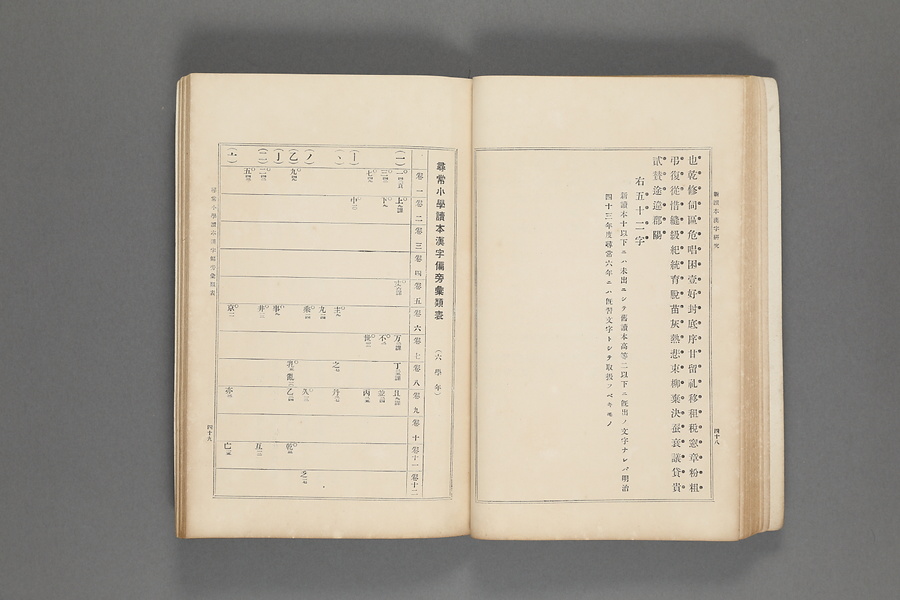 新讀本漢字研究
四十八
也乾修伺區危唱困壹好封底序甘留礼移租税窓章粉粗
弔復從惜縫級紀統育脫苗灰熱悲束柳棄決蚕衰議貸貴
試賛途違郡陽
右五十二字
新讀本十以下ニハ未出ニシテ舊讀本高等二以下ニ旣出ノ文字ナレバ明治
四十三年度尋常六年ニハ旣習文字トシテ取扱フベキモノ
尋常小學讀本漢字偏旁彙類表
(六學年)
卷一
卷二
卷三
卷四
卷五
卷六
卷七
卷八
卷九
卷十
卷十一
卷十二
(一)
一
上
丈
万
丁
且
三
下
不
並
七
世
丙
(丨)
中
(丶)
主
之
丹
(ノ)
九
久
(乙)
九
乘
乳
亂
乙
乾
(亅)
事
(二)
二
井
互
五
(亠)
京
亦
亡
尋常小學讀本漢字偏旁彙類表
四十九